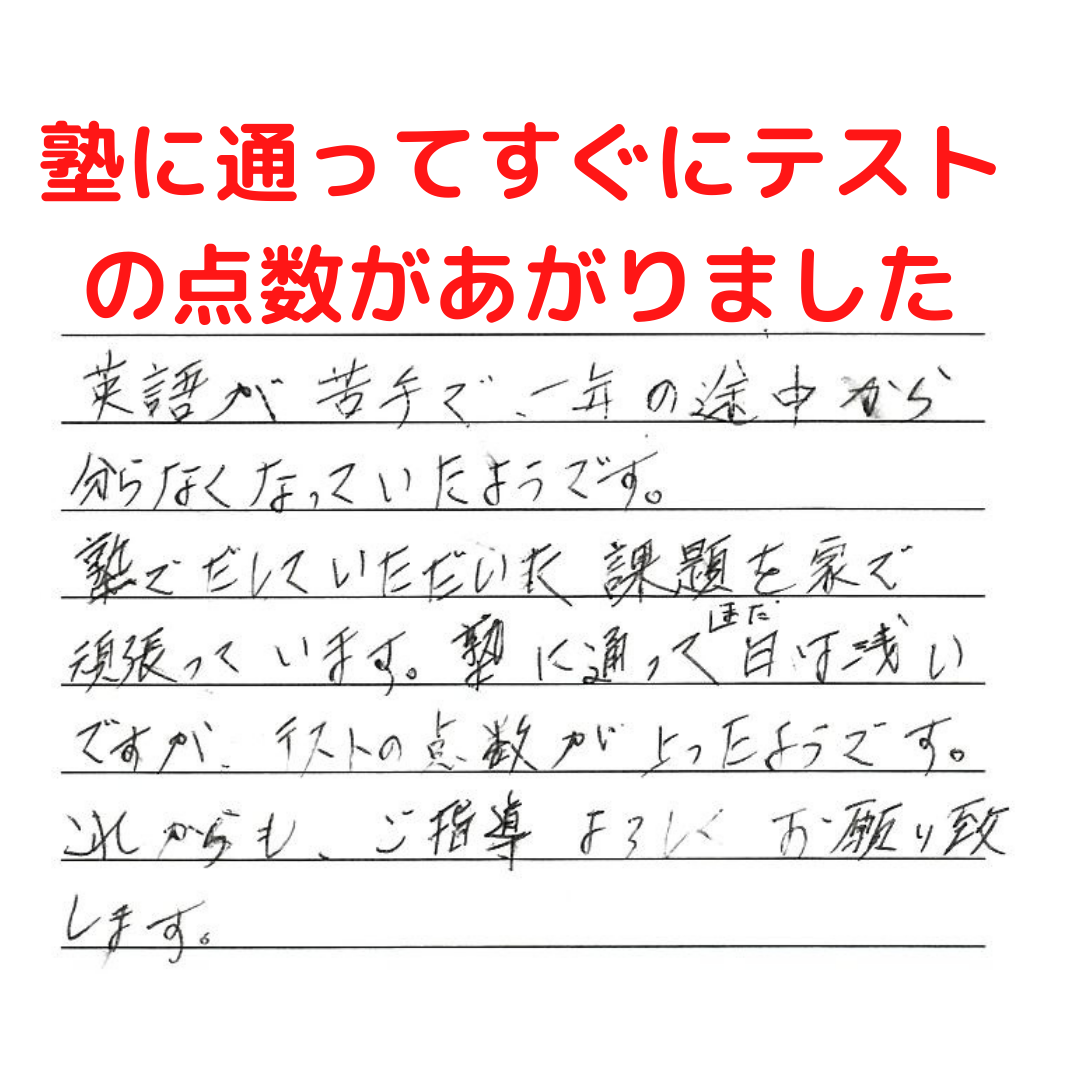 塾に通ってすぐにテスト
の点数があがりました
英語が苦手で、一年の途中から
分らなくなっていたようです。
塾でだしていただいた課題を家で
頑張っています。塾に通ってまだ日は浅い
ですが、テストの点数が上ったようです。
これからも、ご指導よろしくお願い致
します。